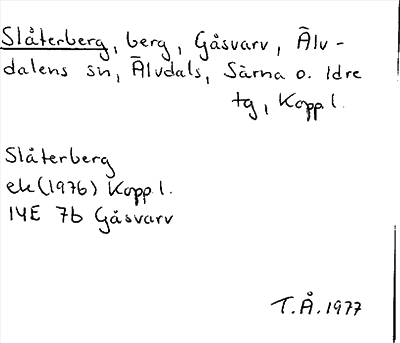 Slåterberg, berg, Gåsvarv, Älv-
dalens sn, Älvdals, Särna o. Idre
tg, Kopp l.
Slåterberg
ek (1976) Kopp l.
14E 7b Gåsvarv
T.Å. 1977